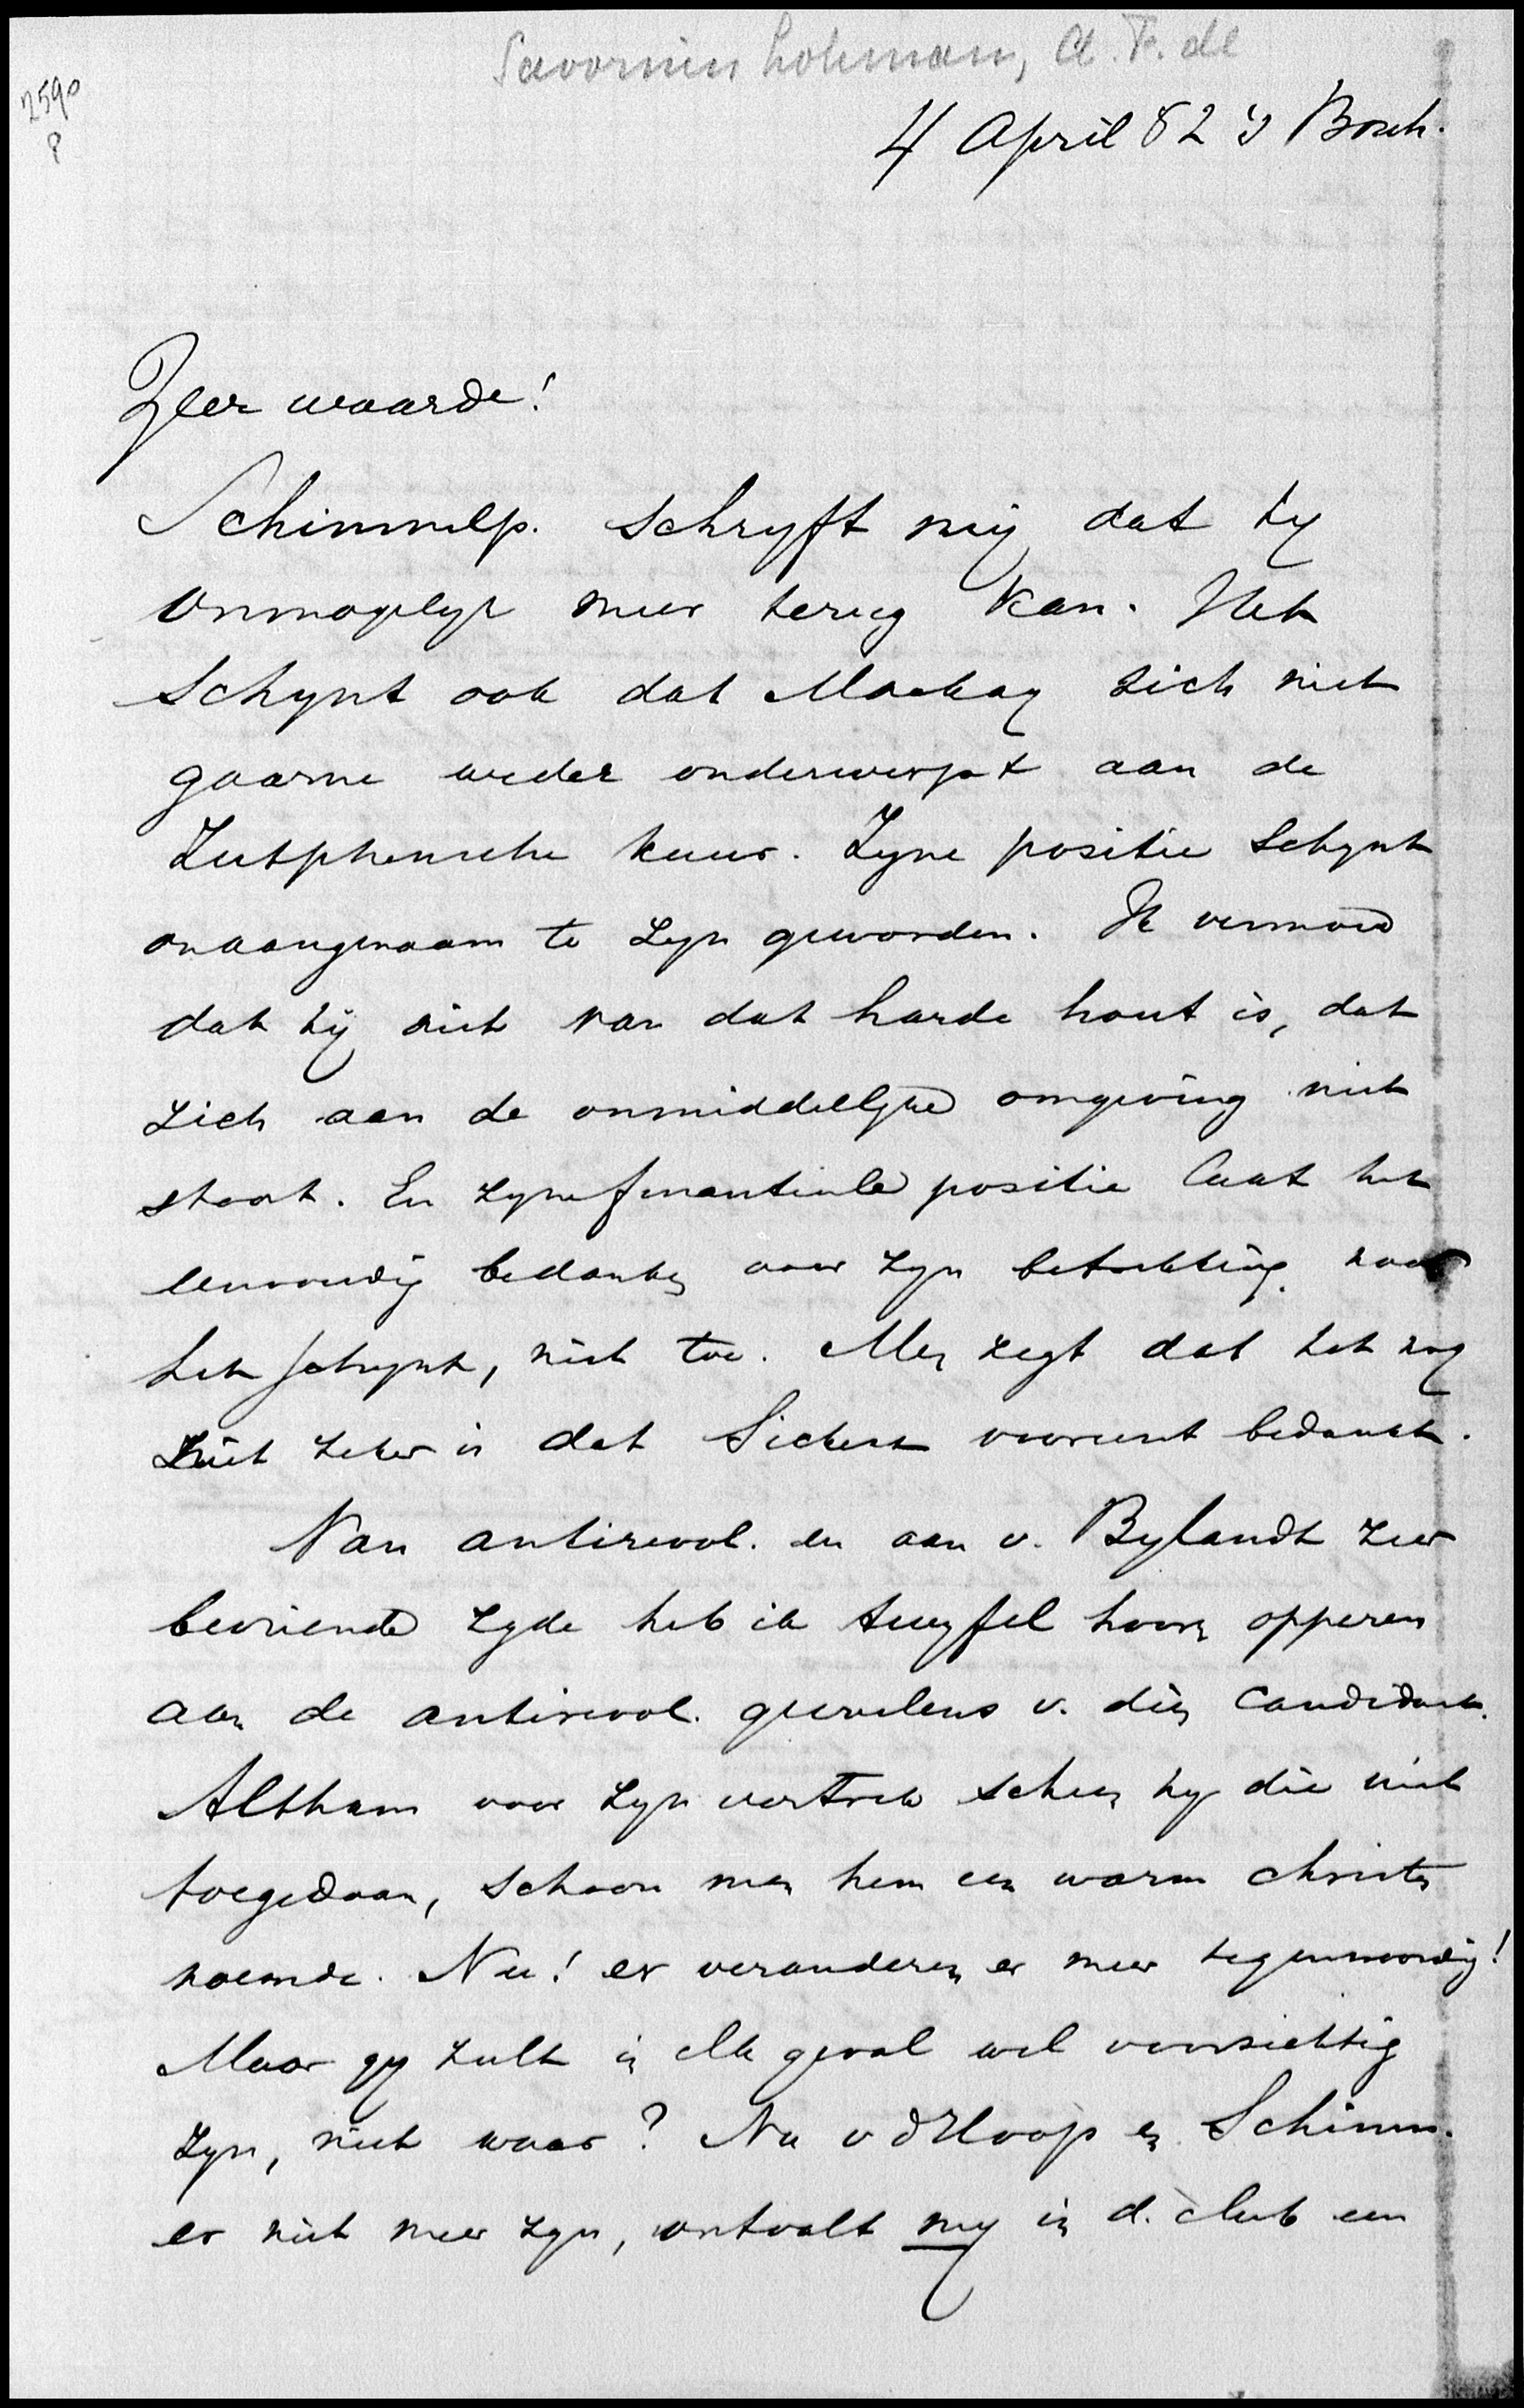 Savornin Lohman, A. F. de
2590
P
4 April 82 's Bosch.
Zeer waarde!
Schimmelp. schryft mij dat hy
onmogelyk meer terug kan. Het
schynt ook dat Mackay zich niet
gaarne weder onderwerpt aan de
Zutphensche kuur. Zyne positie schynt
onaangenaam te zyn geworden. Ik vermoed
dat hij niet van dat harde hout is, dat
zich aan de onmiddellyke omgeving niet
stoort. En zyne finantieele positie laat het
eenvoudig bedanken voor zyn betrekking, naar
het schynt, niet toe. Men zegt dat het nog
niet zeker is dat Sickesz vooreerst bedankt.
Van antirevol. en aan v. Bylandt zeer
bevriende zyde heb ik twyfel hooren opperen
aan de antirevol. gevoelens v. dien candidaat.
Althans voor zyn vertrek scheen hy die niet
toegedaan, schoon men hem een warm christen
noemde. Nu! er veranderen er meer tegenwoordig!
Maar gy zult in elk geval wel voorzichtig
zyn, niet waar? Nu v d Hoop en Schimm.
er niet meer zyn, ontvalt my in d. club een